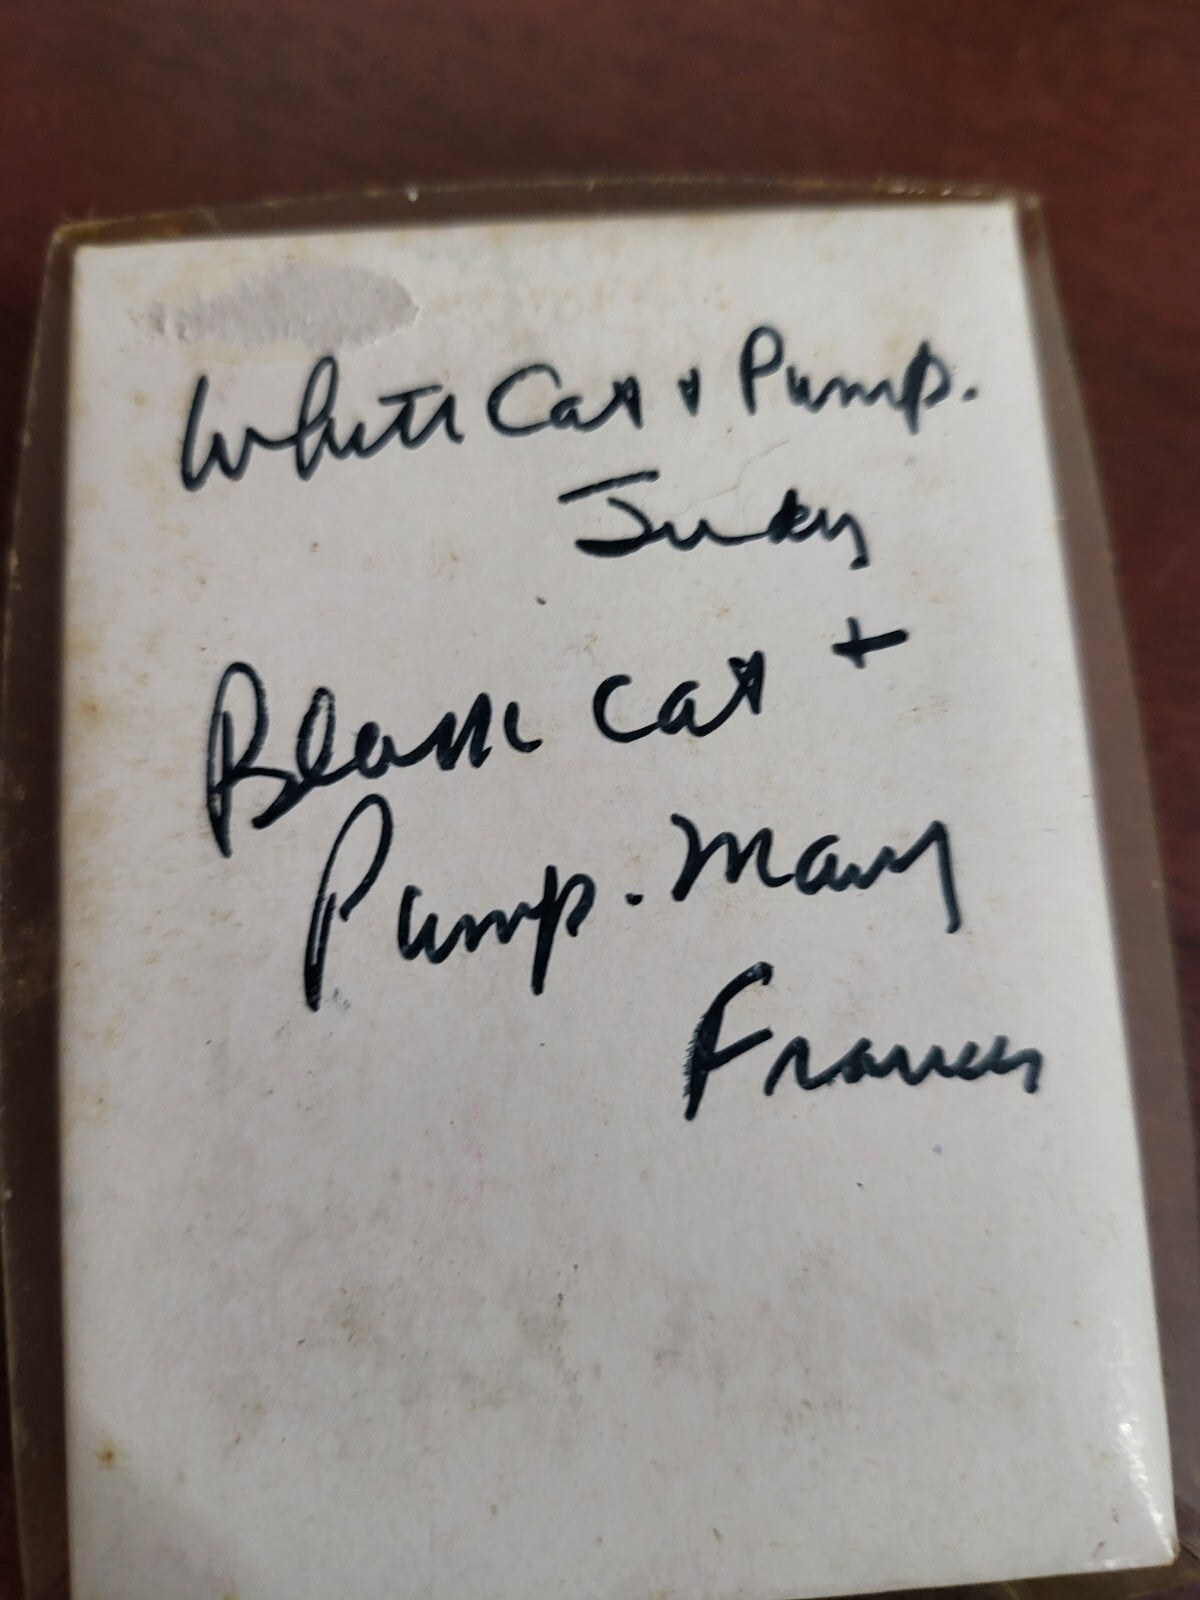 White Cat + Pump.
Judy
Black Cat +
Pump. Mary
Frances